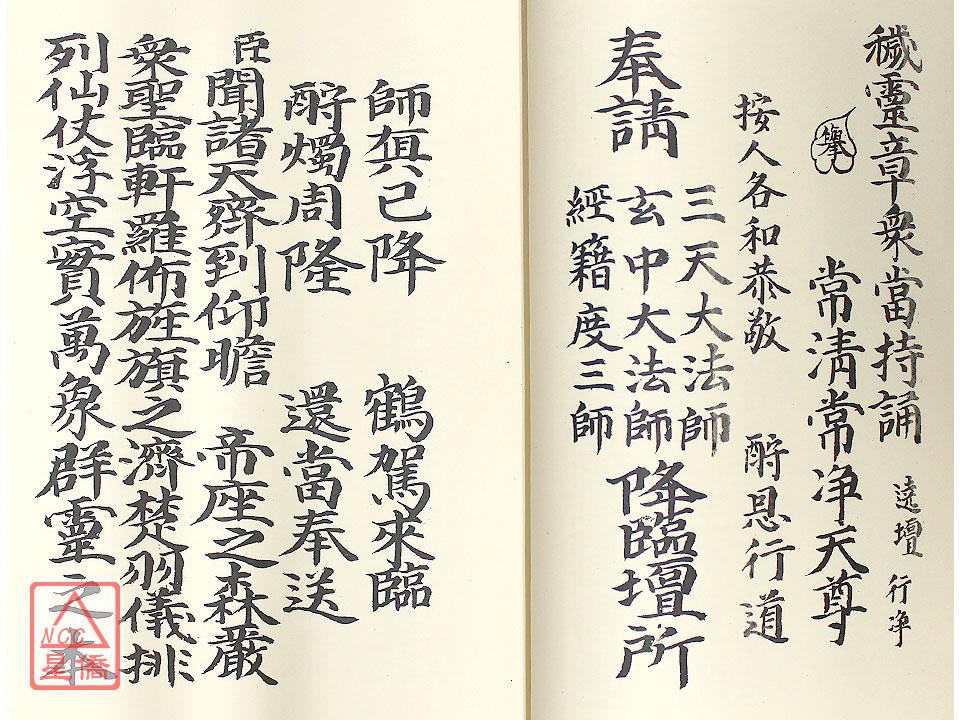 穢靈章衆當持誦 遶壇 行净
常清常净天尊
按人各和恭敬 酧恩行道
奉請 三天大法師 玄中大法師 經籍度三師 降臨壇所
師真已降 鶴駕來臨
酧燭周隆 還當奉送
臣聞諸天齊到仰瞻 帝座之森嚴
衆聖臨軒羅佈旌旗之濟楚羽儀排
列仙仗浮空實萬象群靈之本
NCC
星僑